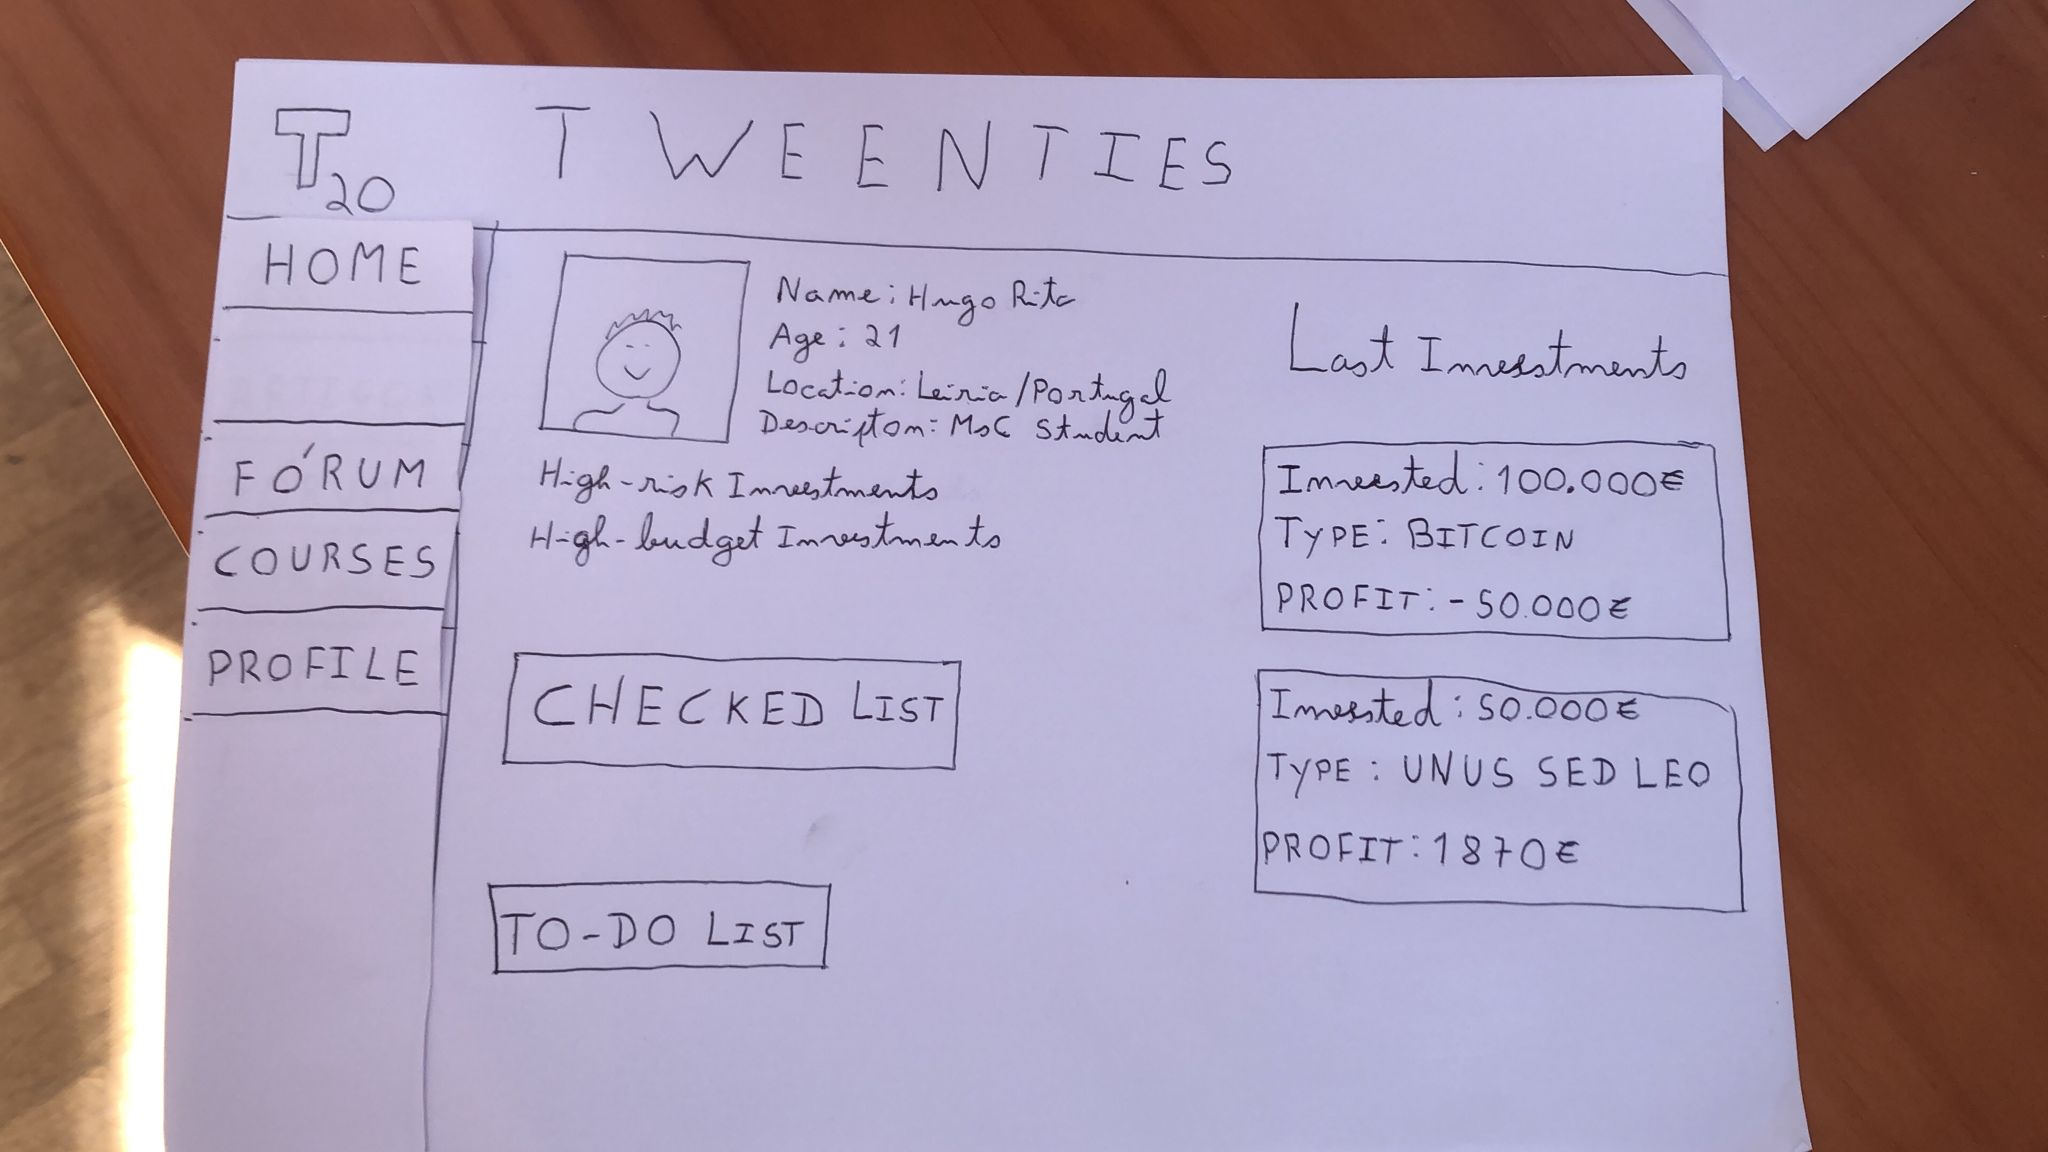 T20
TWEENTIES
HOME
FÓRUM
COURSES
PROFILE
Name: Hugo Rita
Age: 21
Location: Leiria/Portugal
Descripton: MsC Student
High-risk Investments
High-budget Investments
CHECKED LIST
TO-DO LIST
Last Investments
Invested: 100.000€
TYPE: BITCOIN
PROFIT: -50.000€
Invested: 50.000€
TYPE: UNUS SED LEO
PROFIT: 1870€